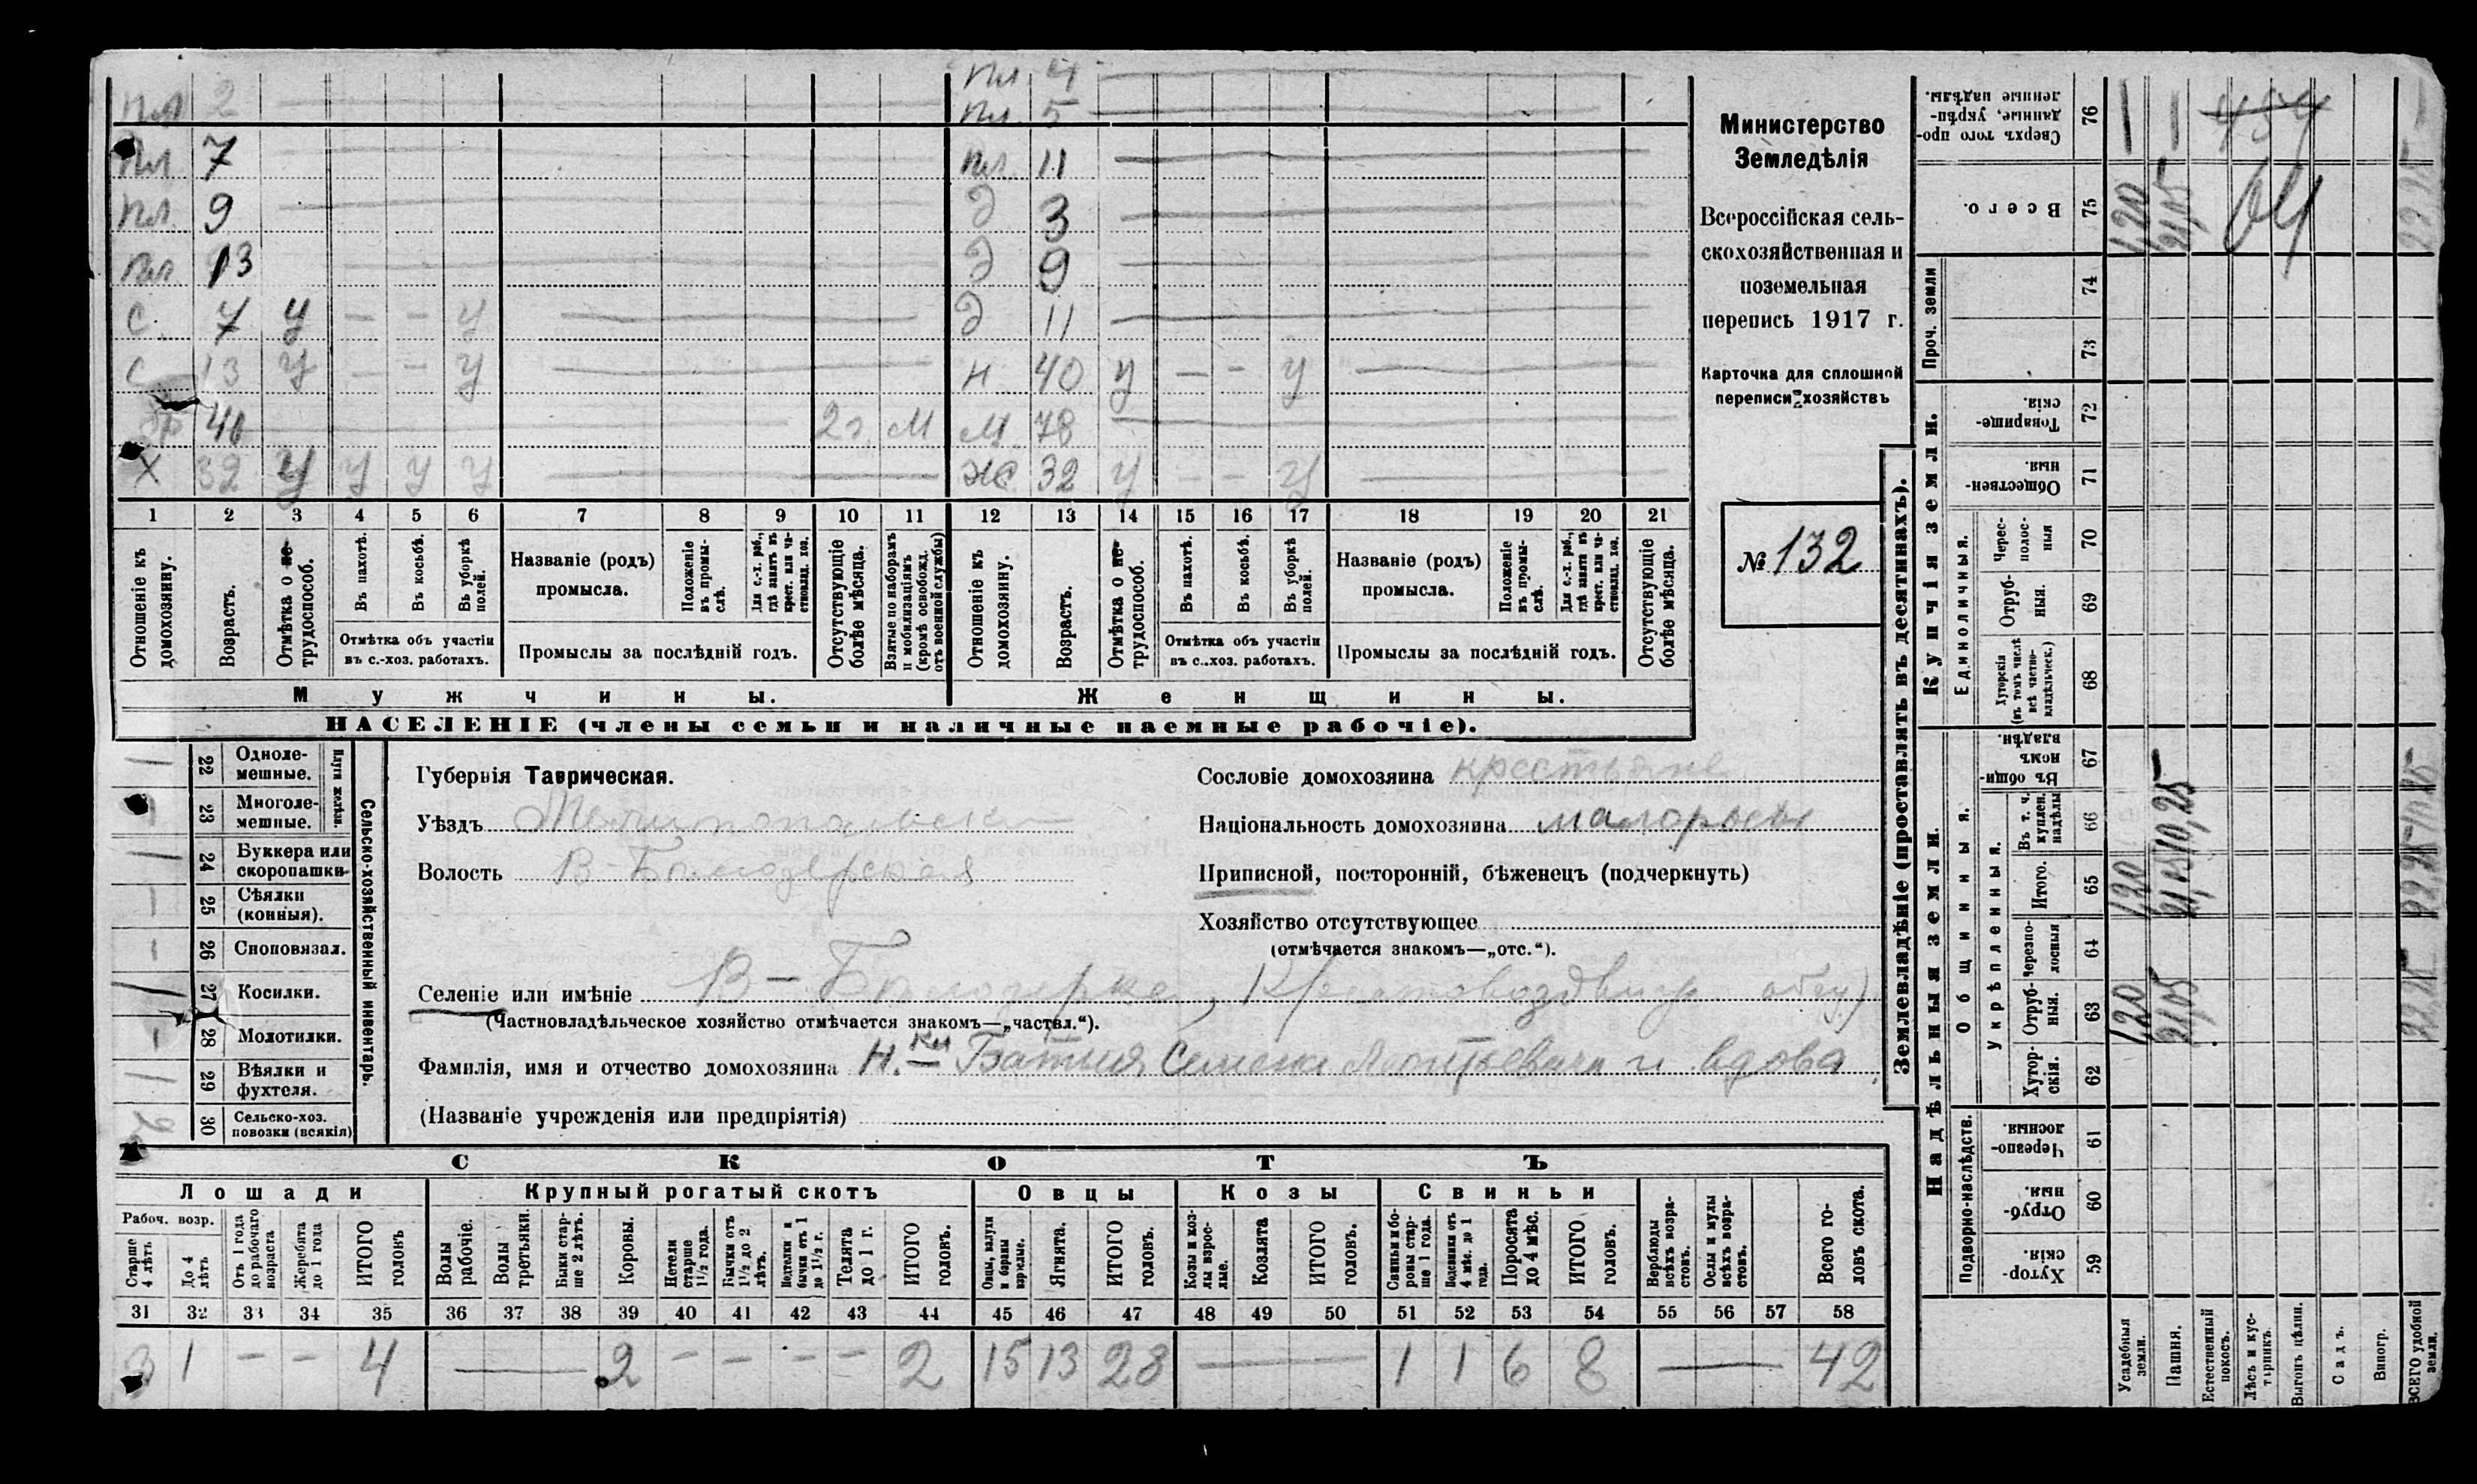 пл 2 пл. 4
пл. 5
пл. 7 пл. 11
пл. 9 д 3
пл. 13 д 9
с. 7 у — — у д 11
с 13 у — — у н 40 у — — у
бр 40 2 г. м м 78
х 32 у у у у ж 32 у — — у
1 2 3 4 5 6 7 8 9 10 11 12 13 14 15 16 17 18 19 20 21
Отношеніе къ домохозяину.
Возрастъ.
Отмѣтка о не-трудоспособ.
Въ пахотѣ.
Въ косьбѣ.
Въ уборкѣ полей.
Отмѣтка объ участіи въ с.-хоз. работахъ.
Названіе (родъ) промысла.
Положеніе въ промы-слѣ.
Для с.-х. раб., гдѣ занятъ въ крест. или ча-стновлад. хоз.
Промыслы за послѣдній годъ.
Отсутствующіе болѣе мѣсяца.
Взятые по наборамъ и мобилизаціямъ (кромѣ освобожд. отъ военной службы)
Отношеніе къ домохозяину.
Возрастъ.
Отмѣтка о не-трудоспособ.
Въ пахотѣ.
Въ косьбѣ.
Въ уборкѣ полей.
Отмѣтка объ участіи въ с.-хоз. работахъ.
Названіе (родъ) промысла.
Положеніе въ промы-слѣ.
Для с.-х. раб., гдѣ занята въ крест. или ча-стновлад. хоз.
Промыслы за послѣдній годъ.
Отсутствующіе болѣе мѣсяца.
Мужчины. Женщины.
НАСЕЛЕНІЕ (члены семьи и наличные наемные рабочіе).
Министерство
Земледѣлія
Всероссійская сель-
скохозяйственная и
поземельная
перепись 1917 г.
Карточка для сплошной
переписи хозяйствъ
№ 132
22 Одноле-мешные.
23 Многоле-мешные.
Плуги желѣзн.
24 Буккера или скоропашки
25 Сѣялки (конныя).
26 Сноповязал.
27 Косилки.
28 Молотилки.
29 Вѣялки и фухтеля.
30 Сельско-хоз. повозки (всякія)
Сельско-хозяйственный инвентарь.
Губернія Таврическая.
Уѣздъ Мелитопольскій
Волость В-Бѣлозерская
Сословіе домохозяина крестьяне
Національность домохозяина малороссы
Приписной, посторонній, бѣженецъ (подчеркнуть)
Хозяйство отсутствующее
(отмѣчается знакомъ—„отс.“).
Селеніе или имѣніе В-Бѣлозерка, Крестовоздвиж. общ)
(Частновладѣльческое хозяйство отмѣчается знакомъ—„частвл.“).
Фамилія, имя и отчество домохозяина Н.-ки Семена Леонтьевича и вдова
(Названіе учрежденія или предпріятія)
СКОТЪ
Лошади Крупный рогатый скотъ Овцы Козы Свиньи
Рабоч. возр.
Старше 4 лѣтъ
До 4 лѣтъ
Отъ 1 года до рабочаго возраста
Жеребята до 1 года
ИТОГО головъ
Волы рабочіе.
Волы третьяки.
Быки стар-ше 2 лѣтъ.
Коровы.
Нетели старше 1½ года.
Бычки отъ 1½ до 2 лѣтъ.
Подтелки и бычки отъ 1 до 1½ г.
Телята до 1 г.
ИТОГО головъ.
Овцы, валухи и бараны взрослые.
Ягнята.
ИТОГО головъ.
Козы и коз-лы взрос-лые.
Козлята
ИТОГО головъ.
Свиньи и бо-ровы стар-ше 1 года.
Подсвинки отъ 4 мѣс. до 1 года.
Поросята до 4 мѣс.
ИТОГО головъ.
Верблюды всѣхъ возра-стовъ.
Ослы и мулы всѣхъ возра-стовъ.
Всего го-ловъ скота.
31 32 33 34 35 36 37 38 39 40 41 42 43 44 45 46 47 48 49 50 51 52 53 54 55 56 57 58
3 1 — — 4 — 2 — — — — 2 15 13 28 — 1 1 6 8 — 42
Землевладѣніе (проставлять въ десятинахъ).
Надѣльныя земли. Купчія земли.
Подворно-наслѣдств.
Общинныя.
Укрѣпленныя.
Единоличныя.
Проч. земли
Хутор-скія. 59
Отруб-ныя. 60
Черезпо-лосныя 61
Хутор-скія. 62
Отруб-ныя. 63
Черезпо-лосныя 64
Итого. 65
Въ т. ч. куплен. надѣлы 66
Въ общин-номъ владѣн. 67
Хуторскія (въ томъ числѣ всѣ частно-владѣльческ.) 68
Отруб-ныя. 69
Черес-полос-ныя 70
Обществен-ныя. 71
Товарище-скія. 72
73
74
Всего. 75
Сверхъ того про-данные, укрѣп-ленные надѣлы. 76
Усадебныя земли. 1,20 1,20 1,20
Пашня. 21,05 21,05 10,25 21,05
Естественный покосъ.
Лѣсъ и кус-тарникъ.
Выгонъ цѣлин.
Садъ.
Виногр.
ВСЕГО удобной земли. 22,25 22,25 22,25